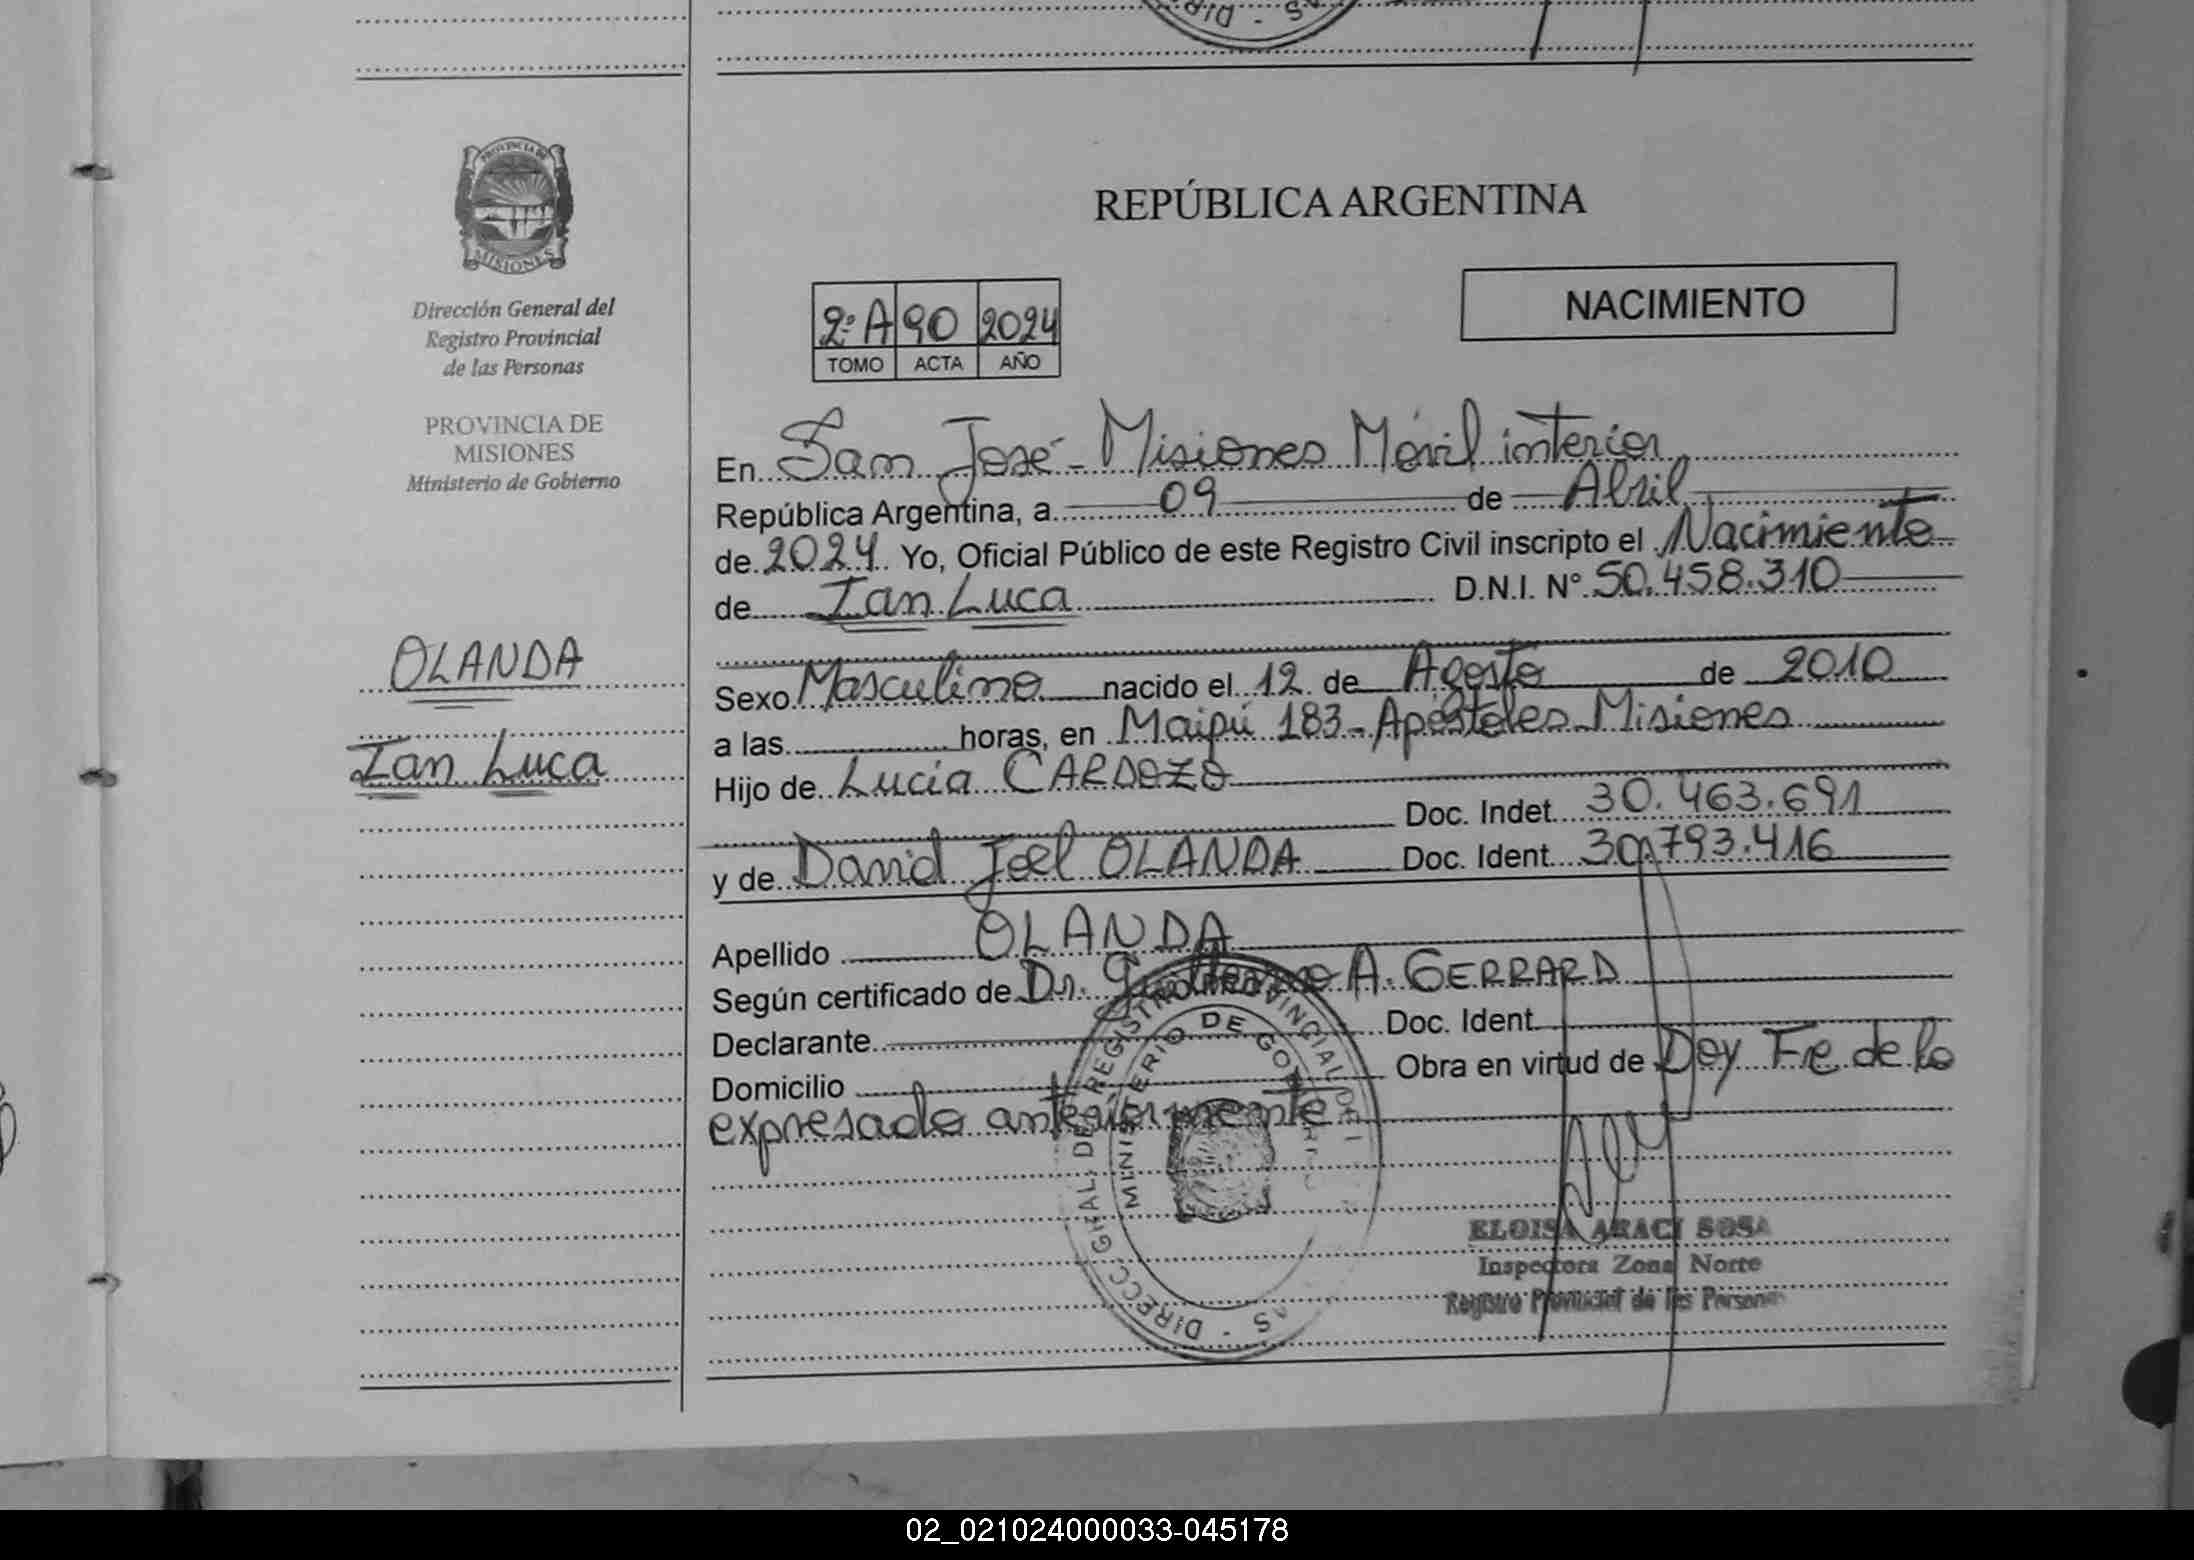 PROVINCIA DE
MISIONES
Dirección General del
Registro Provincial
de las Personas
PROVINCIA DE
MISIONES
Ministerio de Gobierno
OLANDA
Ian Luca
REPÚBLICA ARGENTINA
NACIMIENTO
2º A 90 2024
TOMO ACTA AÑO
En San José - Misiones Móvil interior
República Argentina, a 09 de Abril
de 2024 Yo, Oficial Público de este Registro Civil inscripto el Nacimiento
de Ian Luca D.N.I. Nº 50.458.310
Sexo Masculino nacido el 12 de Agosto de 2010
a las horas, en Maipú 183 - Apóstoles - Misiones
Hijo de Lucía CARDOZO
Doc. Indet. 30.463.691
y de David Joel OLANDA Doc. Ident. 30.793.416
Apellido OLANDA
Según certificado de Dr. Guillermo A. GERRARD
Declarante Doc. Ident.
Domicilio Obra en virtud de Doy Fe de lo
expresado anteriormente
MINISTERIO DE GOBIERNO
ELOISA ARACI SOSA
Inspectora Zona Norte
Registro Provincial de las Personas
02_021024000033-045178